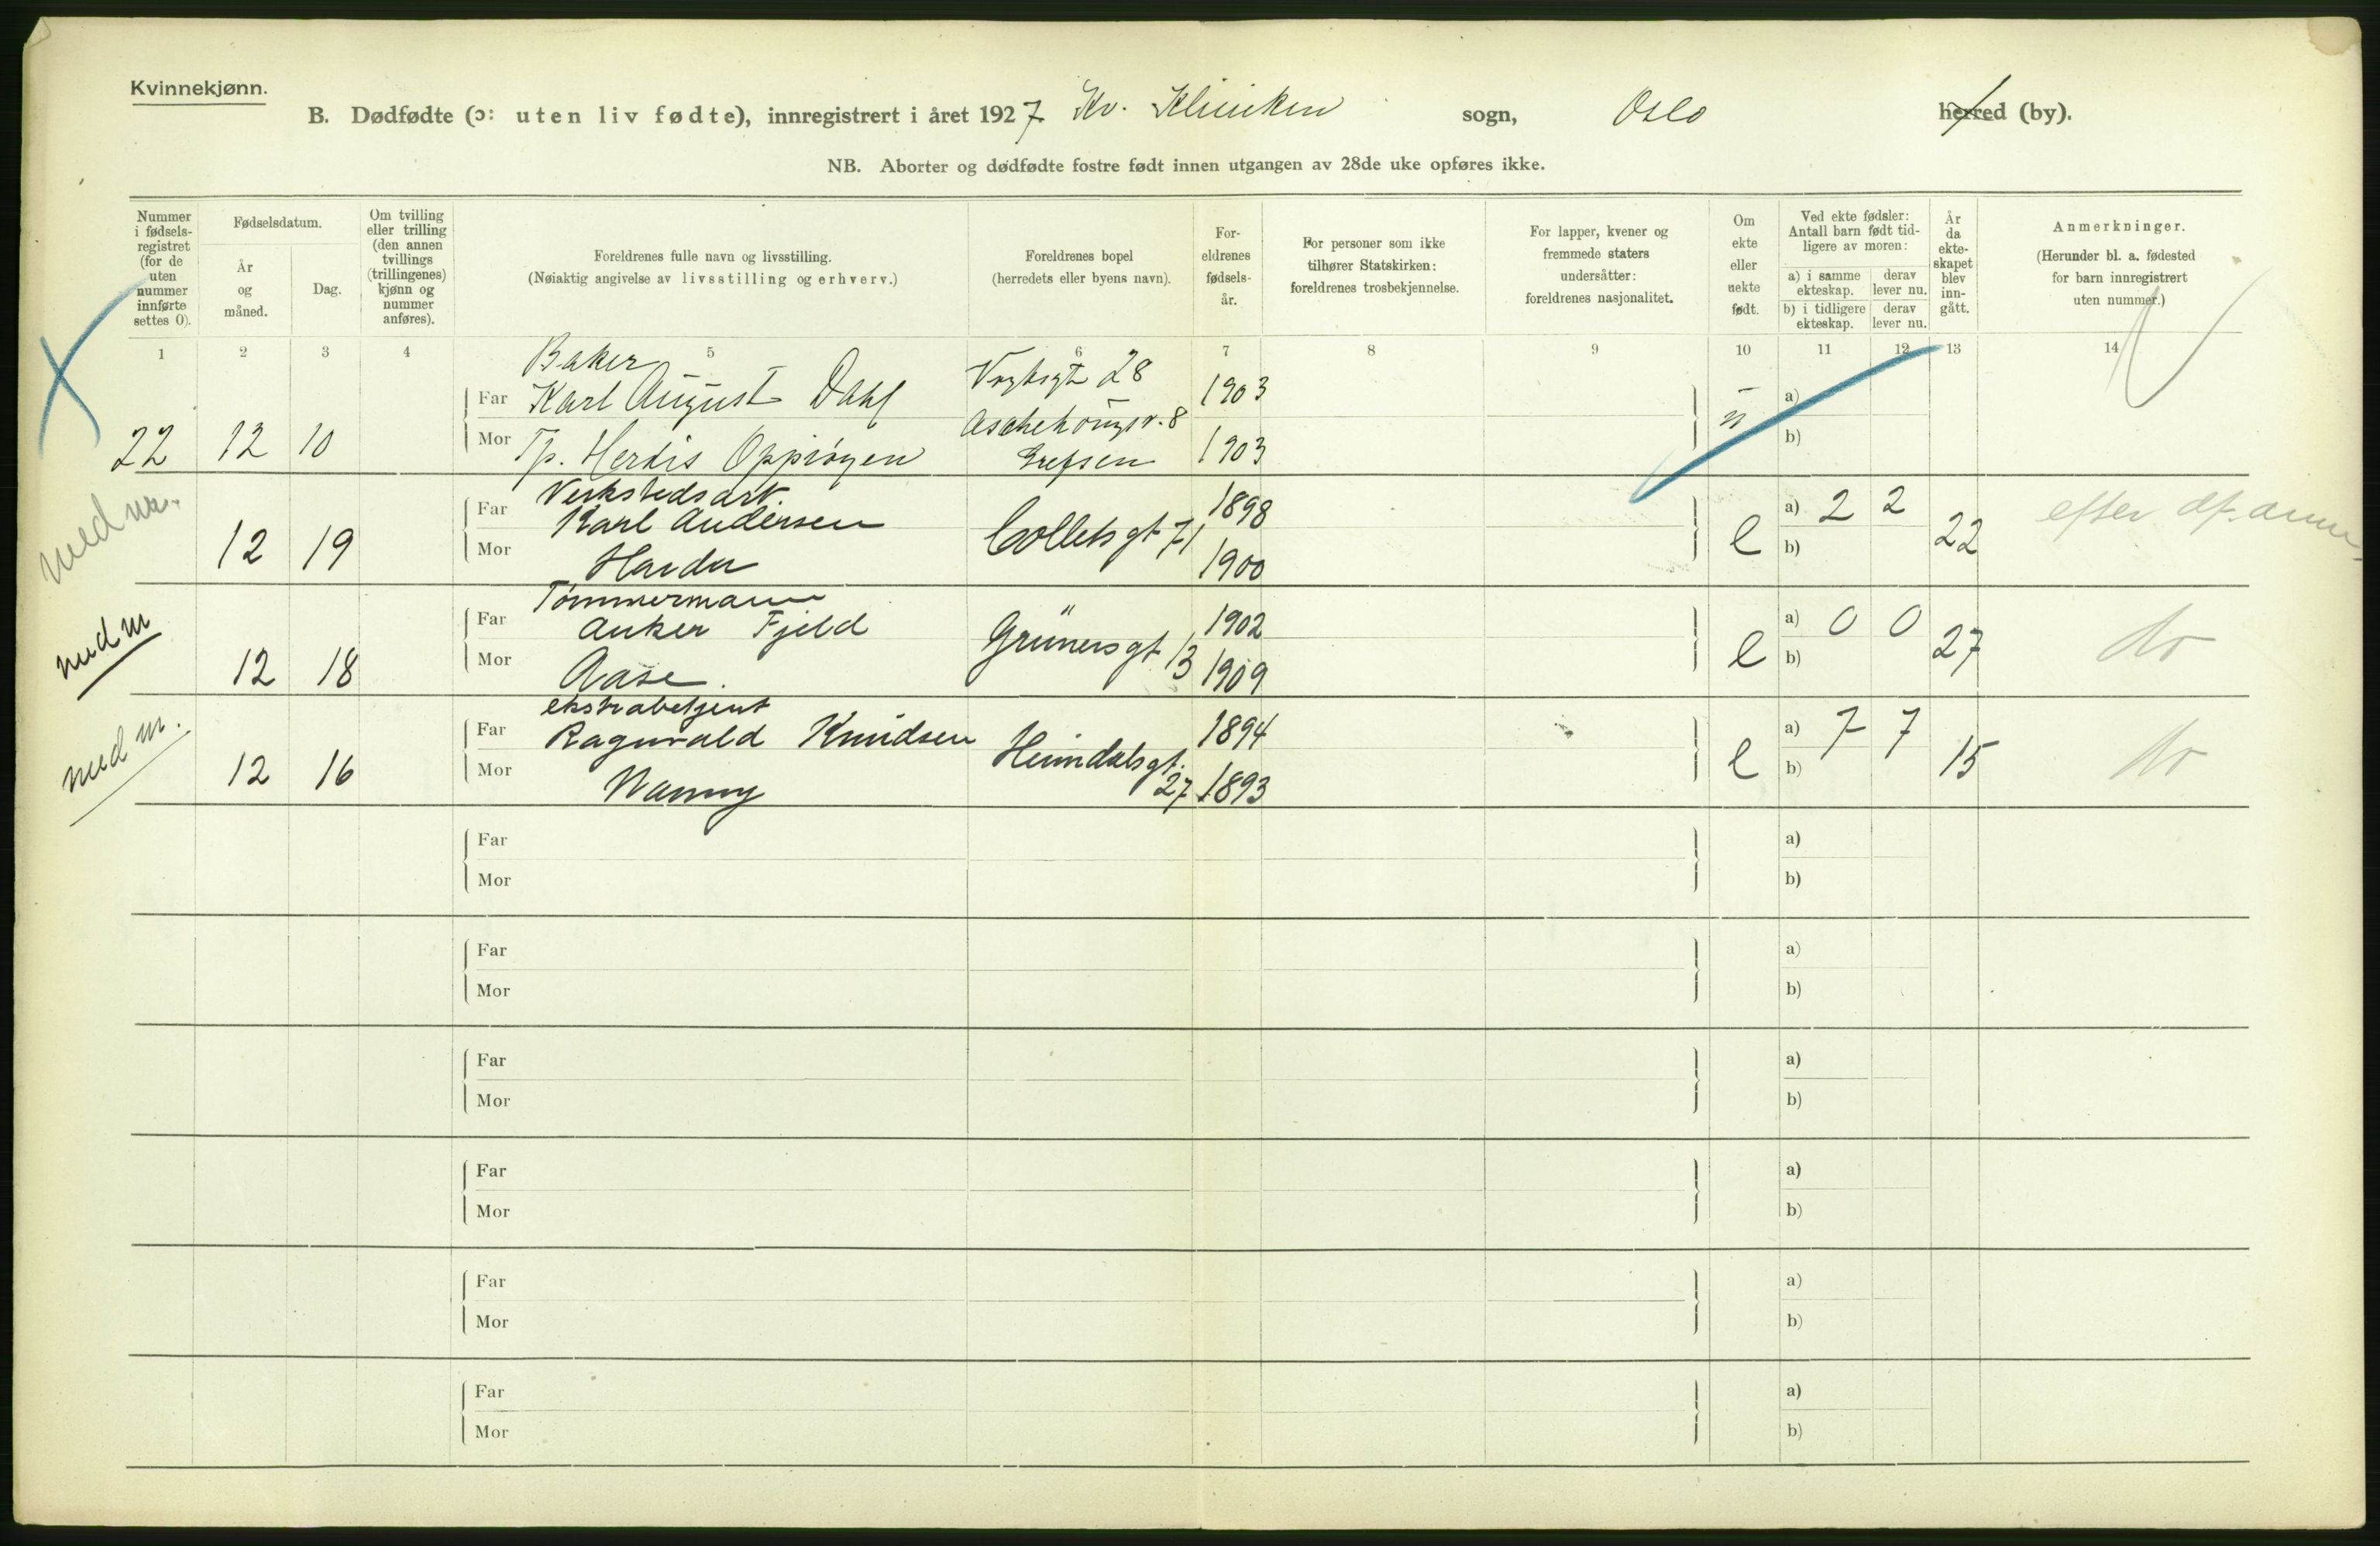 Kvinnekjønn.
B. Dødfødte (ɔ: uten liv fødte), innregistrert i året 1927 Kv. Kliniken sogn, Oslo herred (by).
NB. Aborter og dødfødte fostre født innen utgangen av 28de uke opføres ikke.
Nummer i fødsels-registret (for de uten nummer innførte settes 0).
Fødselsdatum.
År og måned.
Dag.
Om tvilling eller trilling (den annen tvillings (trillingenes) kjønn og nummer anføres).
Foreldrenes fulle navn og livsstilling.
(Nøiaktig angivelse av livsstilling og erhverv.)
Foreldrenes bopel
(herredets eller byens navn).
For-eldrenes fødsels-år.
For personer som ikke tilhører Statskirken: foreldrenes trosbekjennelse.
For lapper, kvener og fremmede staters undersåtter: foreldrenes nasjonalitet.
Om ekte eller uekte født.
Ved ekte fødsler: Antall barn født tid-ligere av moren:
a) i samme ekteskap. derav lever nu.
b) i tidligere ekteskap. derav lever nu.
År da ekte-skapet blev inn-gått.
Anmerkninger.
(Herunder bl. a. fødested for barn innregistrert uten nummer.)
1 2 3 4 5 6 7 8 9 10 11 12 13 14
Baker
Far Karl August Dahl Vogtsgt 28 1903 a)
22 12 10 Mor Tp. Herdis Aschehougsv. 8 Grefsen 1903 u b)
Verkstedsarb.
Far Karl Andersen 1898 a) 2 2 efter df. anm.
med nr. 12 19 Mor Harda Colletsgt 71 1900 e b) 22
Tømmermann
Far Anker Fjeld 1902 a) 0 0
med nr 12 18 Mor Aase. Grünersgt 13 1909 e b) 27 do
ekstrabetjent
Far Ragnvald Knudsen 1894 a) 7 7
med nr. 12 16 Mor Nanny Heimdalsgt. 27 1893 e b) 15 do
Far a)
Mor b)
Far a)
Mor b)
Far a)
Mor b)
Far a)
Mor b)
Far a)
Mor b)
Far a)
Mor b)